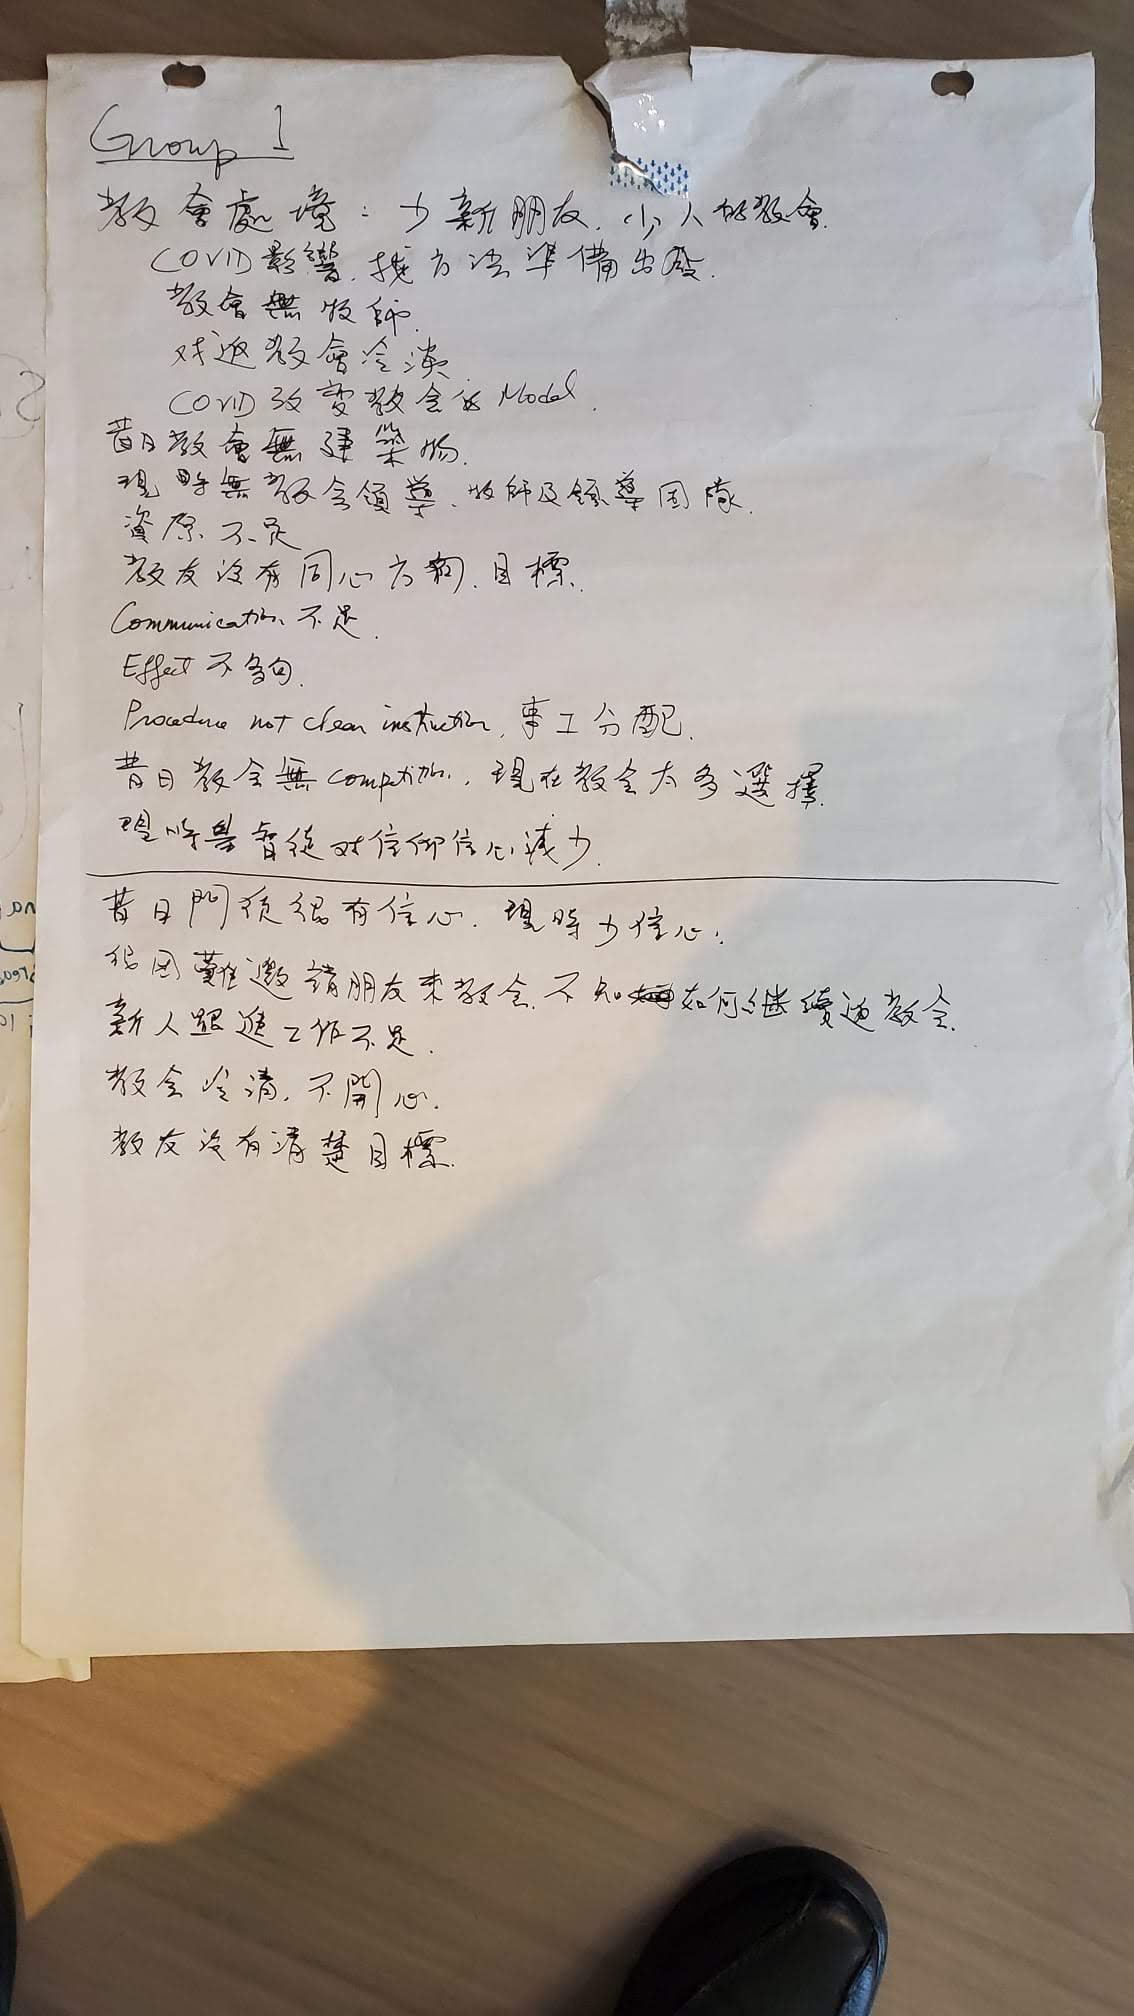 Group 1
教會處境：少新朋友、小人的教會.
COVID影響、找方法準備出發.
教會無牧師.
对返教會冷淡
COVID改變教会的 Model.
昔日教會無建築物.
現時無教会領導、牧師及領導团隊.
資原不足
教友没有同心方向、目標.
Communication 不足.
Effect 不多句.
Procedure not clear instruction, 事工分配.
昔日教会無 competition, 現在教会太多選擇.
現時基督徒对信仰信心減少.
昔日門徒很有信心、現時少信心.
很困難邀請朋友来教会、不知如何継續返教会.
新人跟進工作不足.
教会冷清、不開心.
教友没有清楚目標.